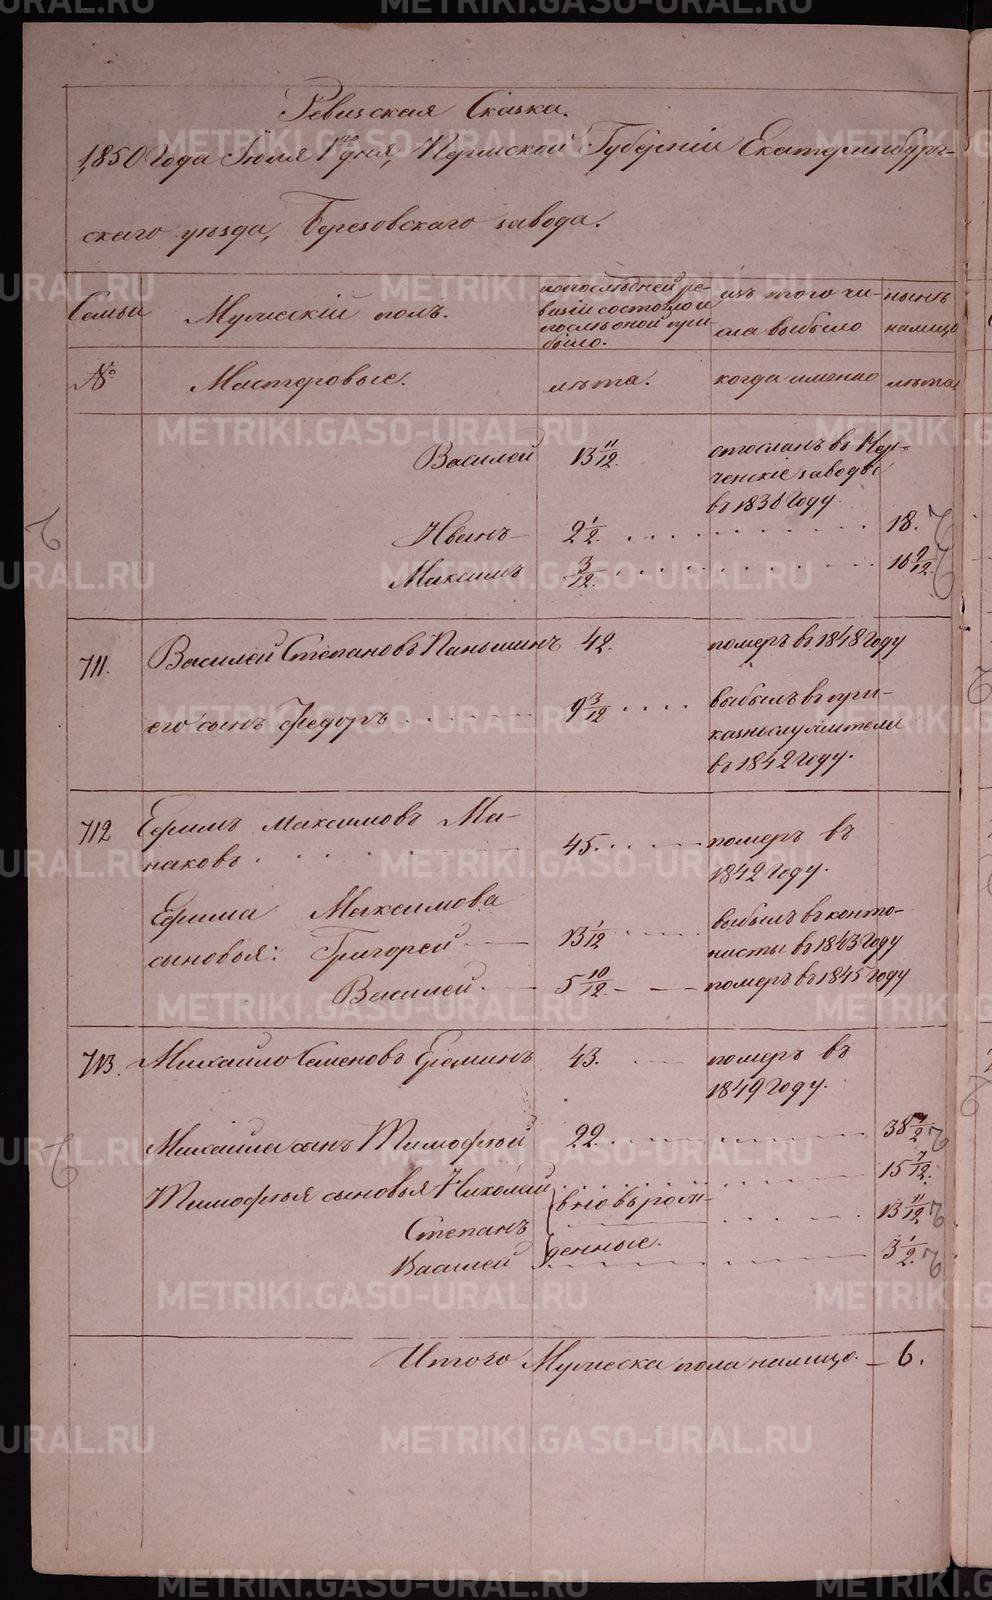 Ревизская Сказка.
1850 Года Июля 1го дня, Пермской Губерніи Екатеринбург-
скаго уѣзда, Березовскаго завода.
Семьи
Мужескій полъ.
по послѣдней ре-
визіи состояло и
послѣ оной при-
было.
изъ того чи-
сла выбыло
нынѣ
налицо
№
Мастеровые.
лѣта.
когда именно
лѣта
Василей 13 11/12. отосланъ въ Нер-
ченскіе заводы
въ 1836 Году.
Иванъ 2 1/2. 18.
Максимъ 3/12. 16 9/12.
711. Василей Степановъ Паньшинъ 42. померъ въ 1848 Году
его сынъ Федоръ 9 3/12 выбылъ въ при-
казнослужители
въ 1842 Году.
712 Ефимъ Максимовъ Ма-
наковъ 45. померъ въ
1842 Году.
Ефима Максимова
сыновья: Григорей 13 1/12 выбылъ въ канто-
нисты въ 1843 Году
Василей. 5 10/12. померъ въ 1845 Году
713. Михайло Семеновъ Ереминъ 43. померъ въ
1849 Году.
Михайла сынъ Тимофѣй 22. 38 1/2
Тимофѣя сыновья Николай 15 7/12.
Степанъ вновь рож- 13 11/12
Василей денные. 3 1/2.
Итого Мужеска пола налицо. – 6.
METRIKI.GASO-URAL.RU